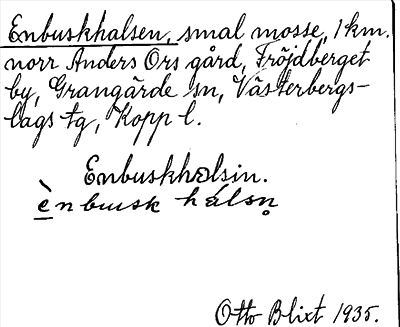 Enbuskhalsen, smal mosse, 1 km.
norr Anders Ors gård, Fröjdberget
by, Grangärde sn, Västerbergs-
lags tg, Kopp l.
Enbuskhalsin.
ènbuusk hálsn̥
Otto Blixt 1935.